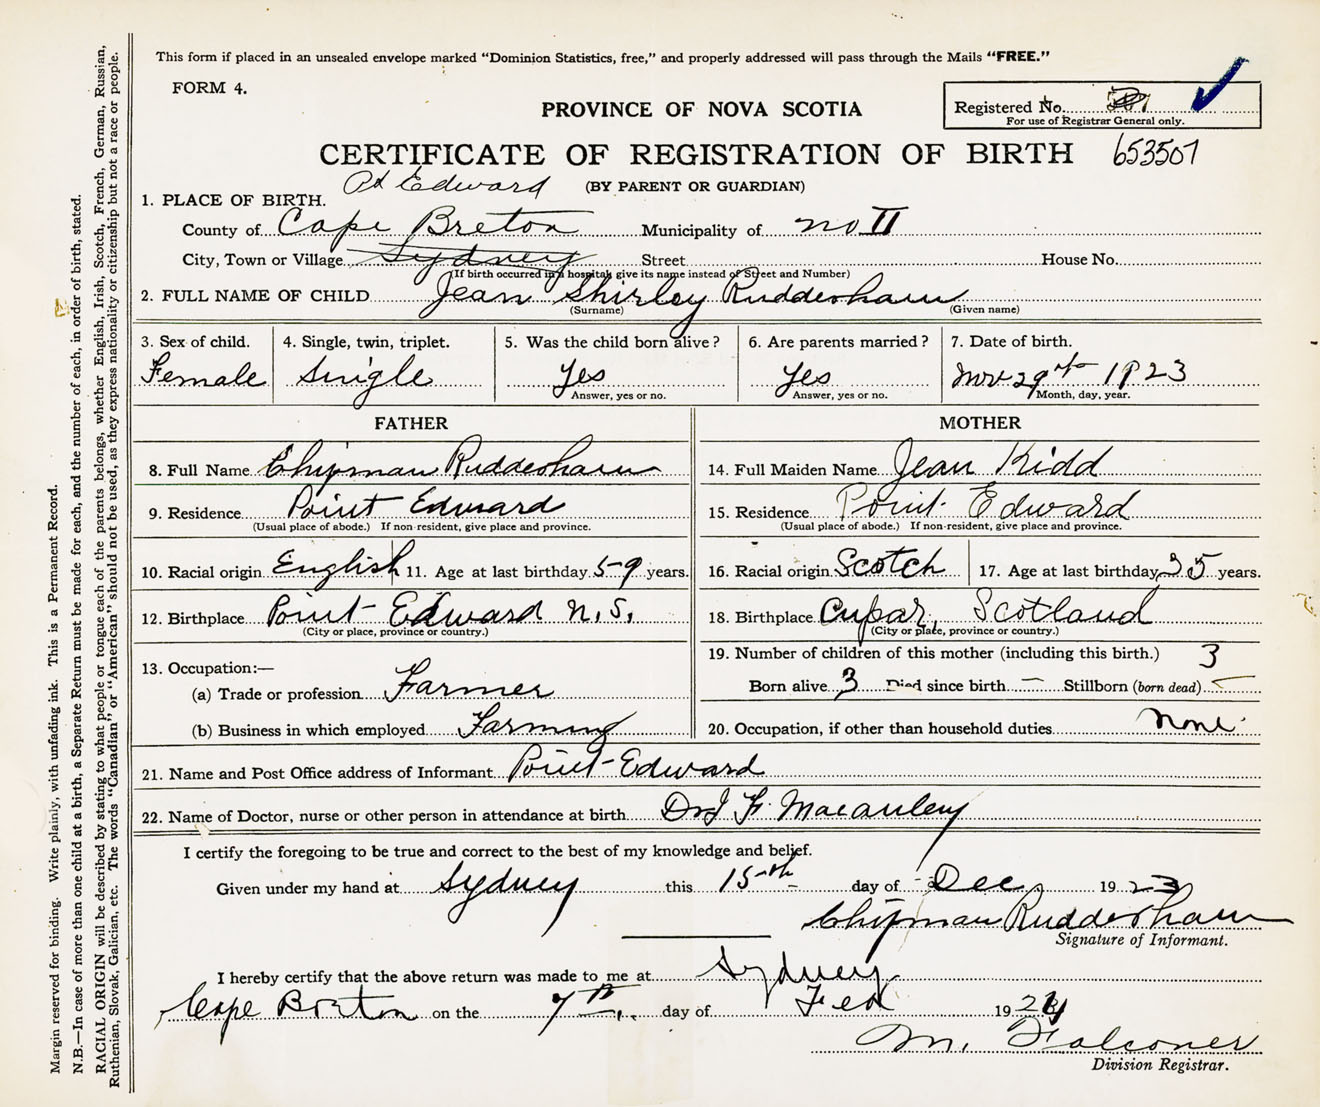 This form if placed in an unsealed envelope marked "Dominion Statistics, free," and properly addressed will pass through the Mails "FREE."
FORM 4.
Registered No.
For use of Registrar General only.
PROVINCE OF NOVA SCOTIA
CERTIFICATE OF REGISTRATION OF BIRTH 653507
(BY PARENT OR GUARDIAN)
Pt Edward
1. PLACE OF BIRTH.
County of Cape Breton Municipality of No II
City, Town or Village Sydney Street House No.
(If birth occurred in a hospital, give its name instead of Street and Number)
2. FULL NAME OF CHILD Jean Shirley Rudderham
(Surname) (Given name)
3. Sex of child. 4. Single, twin, triplet. 5. Was the child born alive? 6. Are parents married? 7. Date of birth.
Female Single Yes Yes Nov 29th 1923
Answer, yes or no. Answer, yes or no. Month, day, year.
FATHER
8. Full Name Chipman Rudderham
9. Residence Point Edward
(Usual place of abode.) If non-resident, give place and province.
10. Racial origin English 11. Age at last birthday 59 years.
12. Birthplace Point Edward N.S.
(City or place, province or country.)
13. Occupation:—
(a) Trade or profession Farmer
(b) Business in which employed Farming
MOTHER
14. Full Maiden Name Jean Kidd
15. Residence Point Edward
(Usual place of abode.) If non-resident, give place and province.
16. Racial origin Scotch 17. Age at last birthday 35 years.
18. Birthplace Cupar, Scotland
(City or place, province or country.)
19. Number of children of this mother (including this birth.) 3
Born alive 3 Died since birth — Stillborn (born dead) —
20. Occupation, if other than household duties None
21. Name and Post Office address of Informant Point Edward
22. Name of Doctor, nurse or other person in attendance at birth Dr J F. Macauley
I certify the foregoing to be true and correct to the best of my knowledge and belief.
Given under my hand at Sydney this 15th day of Dec 1923
Chipman Rudderham
Signature of Informant.
I hereby certify that the above return was made to me at Sydney
Cape Breton on the 7th day of Feb 1924
M. Falconer
Division Registrar.
Margin reserved for binding. Write plainly, with unfading ink. This is a Permanent Record.
N.B.—In case of more than one child at a birth, a Separate Return must be made for each, and the number of each, in order of birth, stated.
RACIAL ORIGIN will be described by stating to what people or tongue each of the parents belongs, whether English, Irish, Scotch, French, German, Russian,
Ruthenian, Slovak, Galician, etc. The words "Canadian" or "American" should not be used, as they express nationality or citizenship but not a race or people.